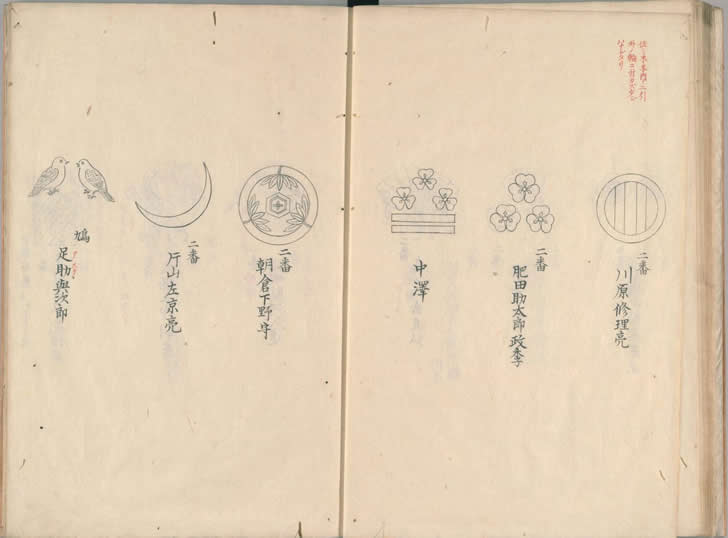 二番
川原修理亮
二番
肥田助太郎政季
中澤
二番
朝倉下野守
二番
片山左京亮
鳩
足助與次郎